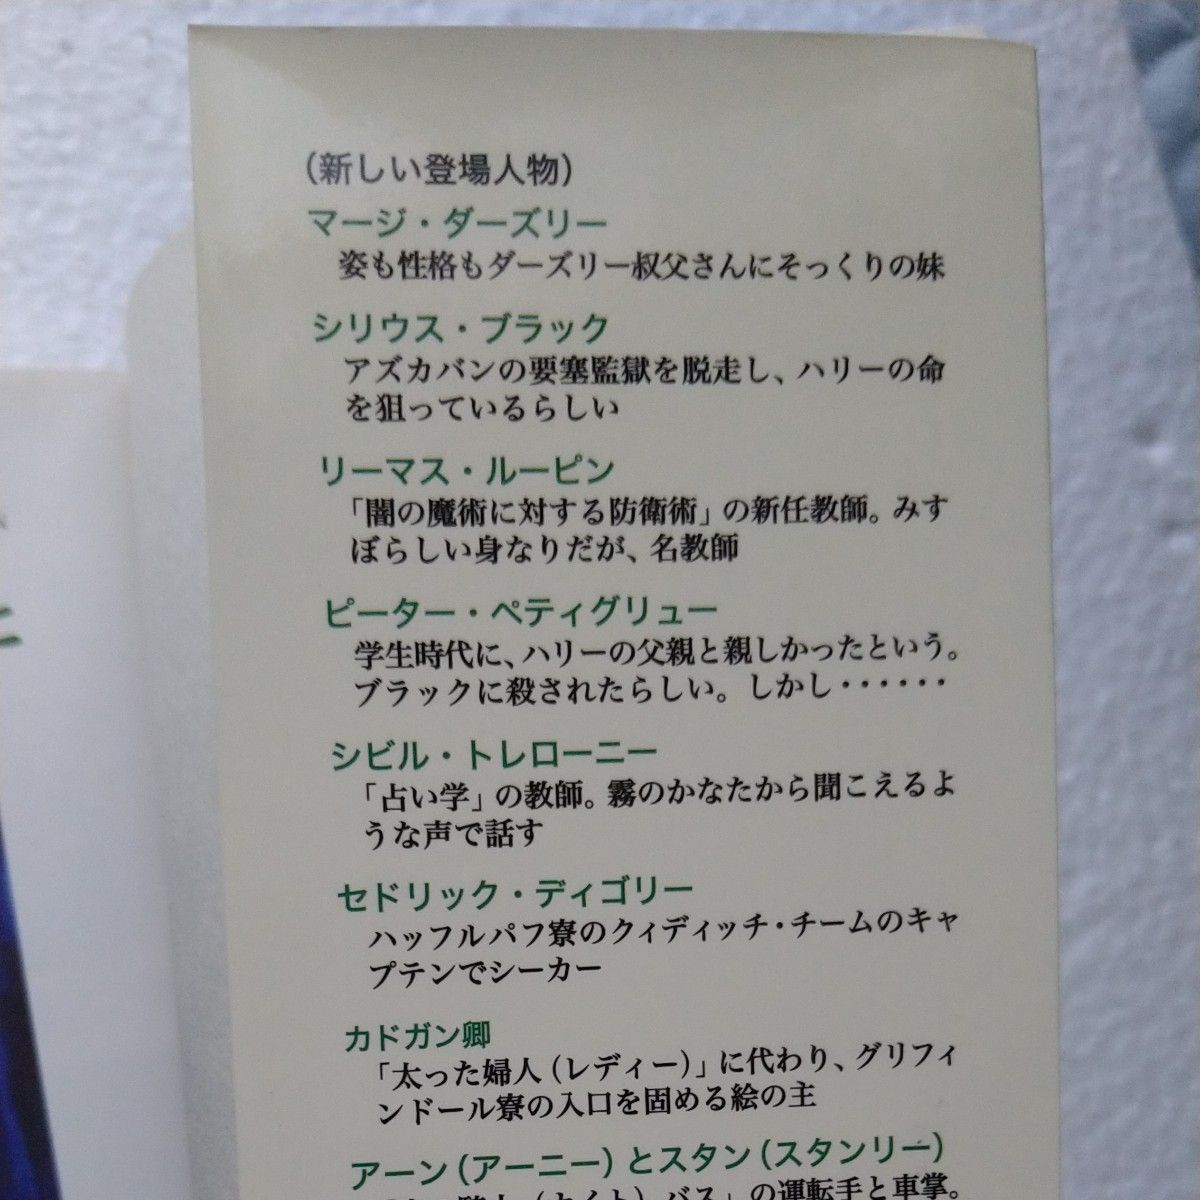 （新しい登場人物）
マージ・ダーズリー
姿も性格もダーズリー叔父さんにそっくりの妹
シリウス・ブラック
アズカバンの要塞監獄を脱走し、ハリーの命
を狙っているらしい
リーマス・ルーピン
「闇の魔術に対する防衛術」の新任教師。みす
ぼらしい身なりだが、名教師
ピーター・ペティグリュー
学生時代に、ハリーの父親と親しかったという。
ブラックに殺されたらしい。しかし・・・・・・
シビル・トレローニー
「占い学」の教師。霧のかなたから聞こえるよ
うな声で話す
セドリック・ディゴリー
ハッフルパフ寮のクィディッチ・チームのキャ
プテンでシーカー
カドガン卿
「太った婦人（レディー）」に代わり、グリフィ
ンドール寮の入口を固める絵の主
アーン（アーニー）とスタン（スタンリー）
バス」の運転手と車掌。